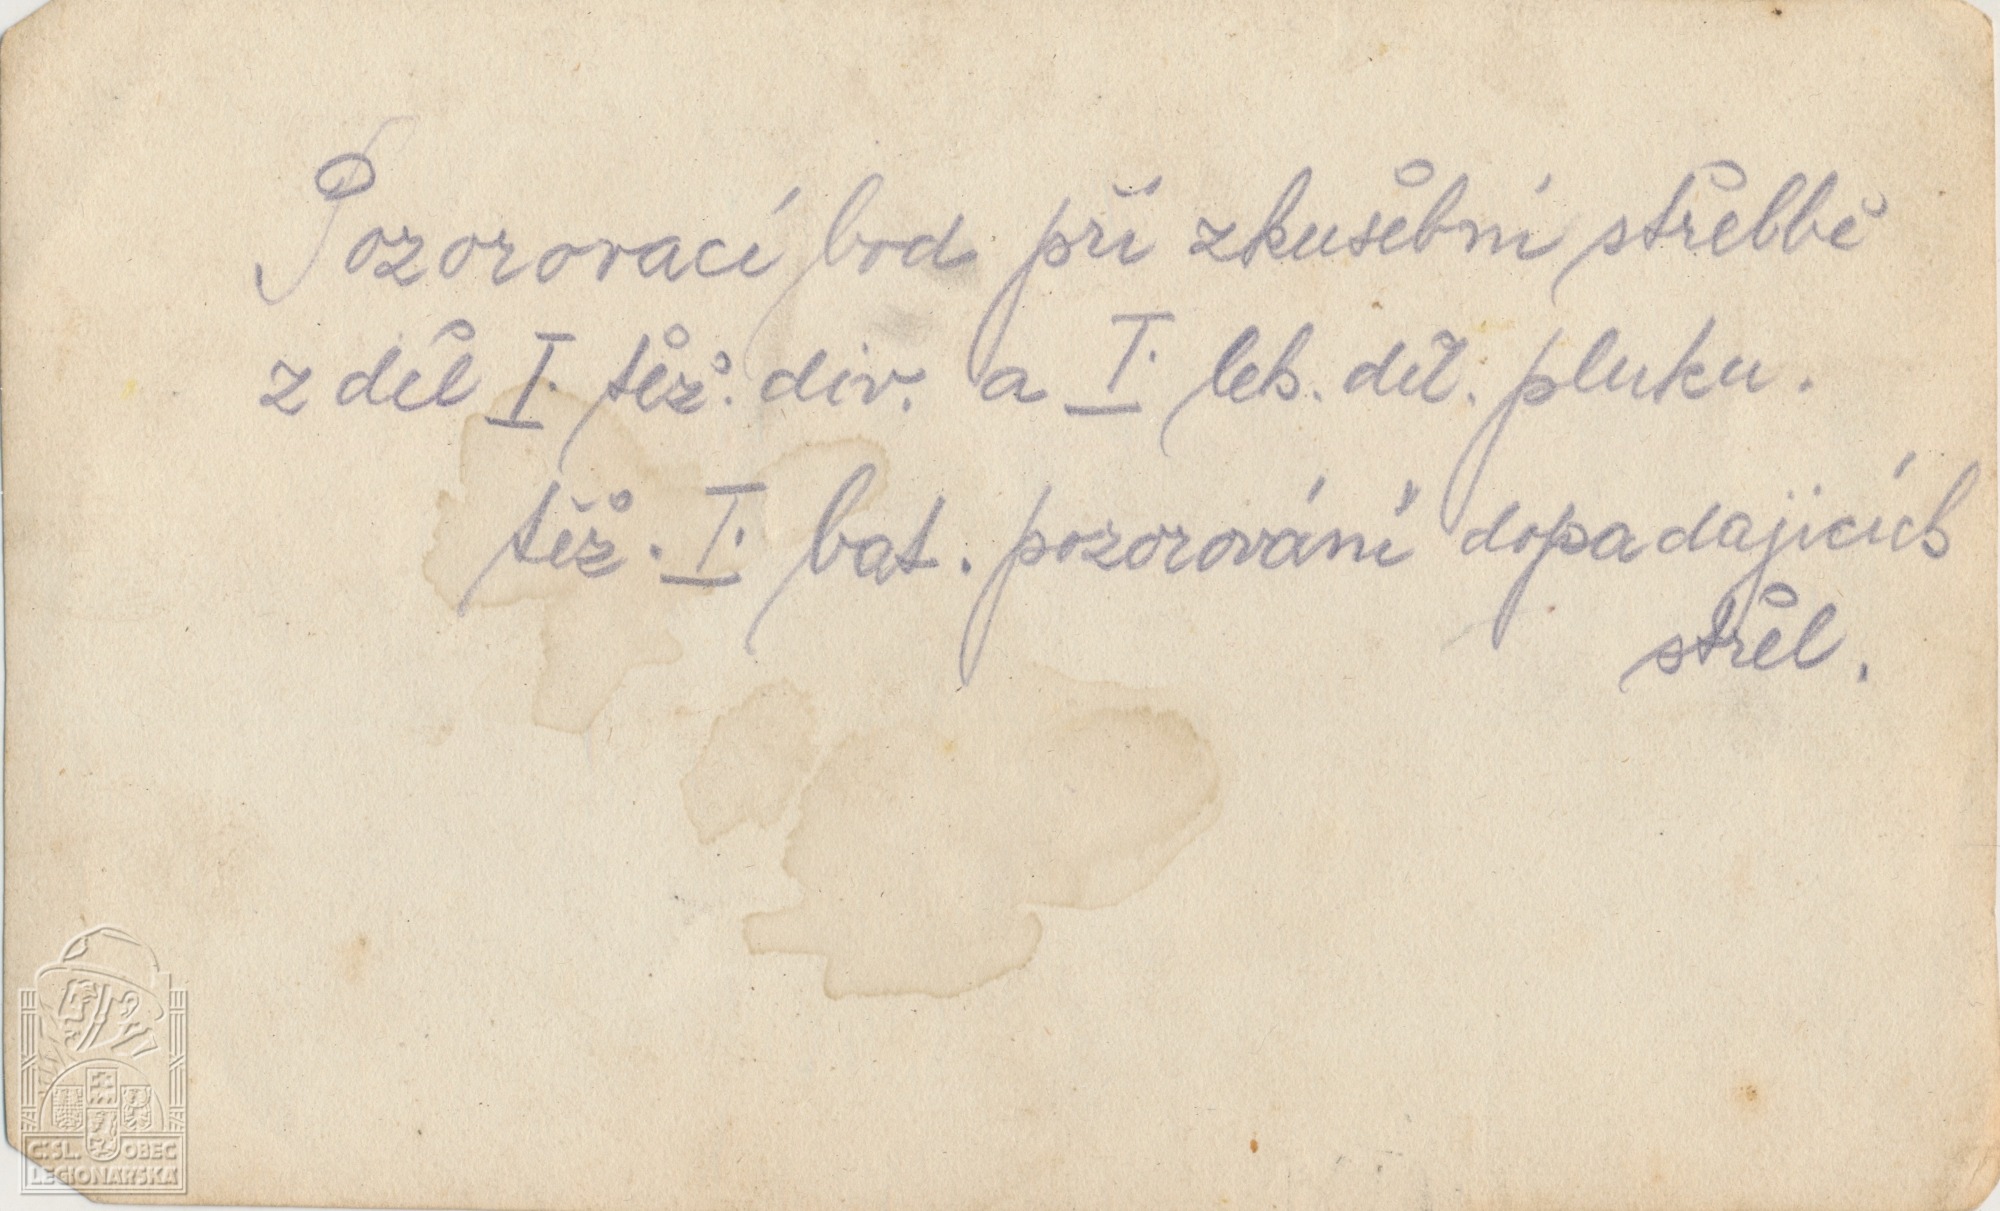 Pozorovací bod při zkušební střelbě
z děl I. těž. div. a I. leh. děl. pluku.
těž. I. bat. pozorování dopadajicích
střel.
Č.SL. OBEC
LEGIONÁŘSKÁ